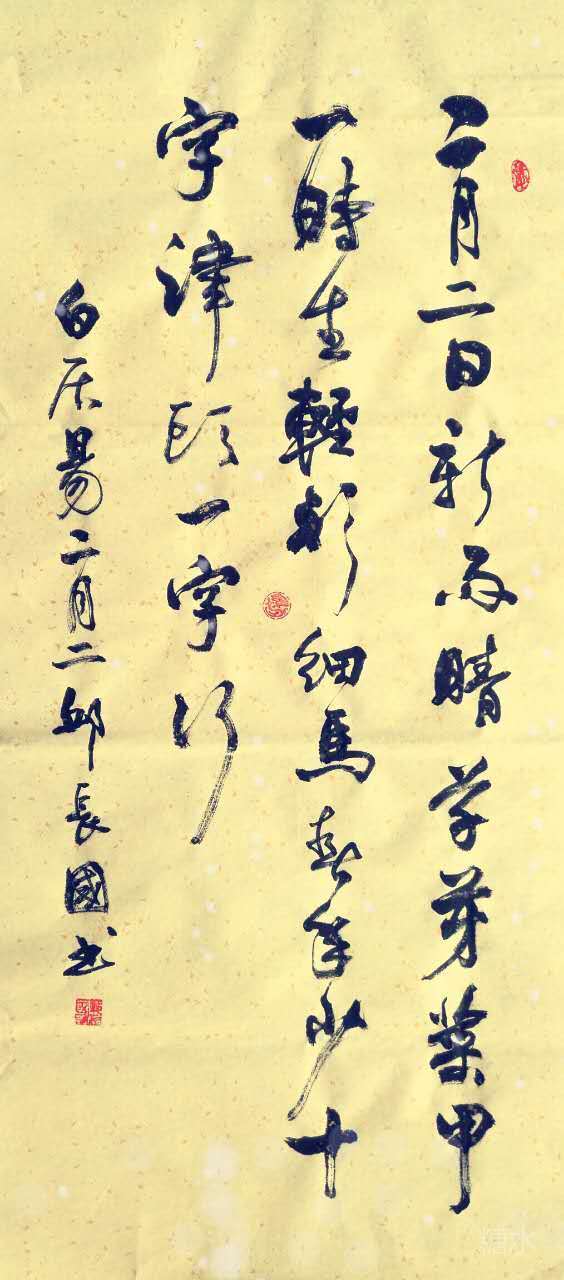 二月二日新雨晴草芽菜甲
一時生輕衫細馬春年少十
字津頭一字行
白居易二月二邱長國书
糖水